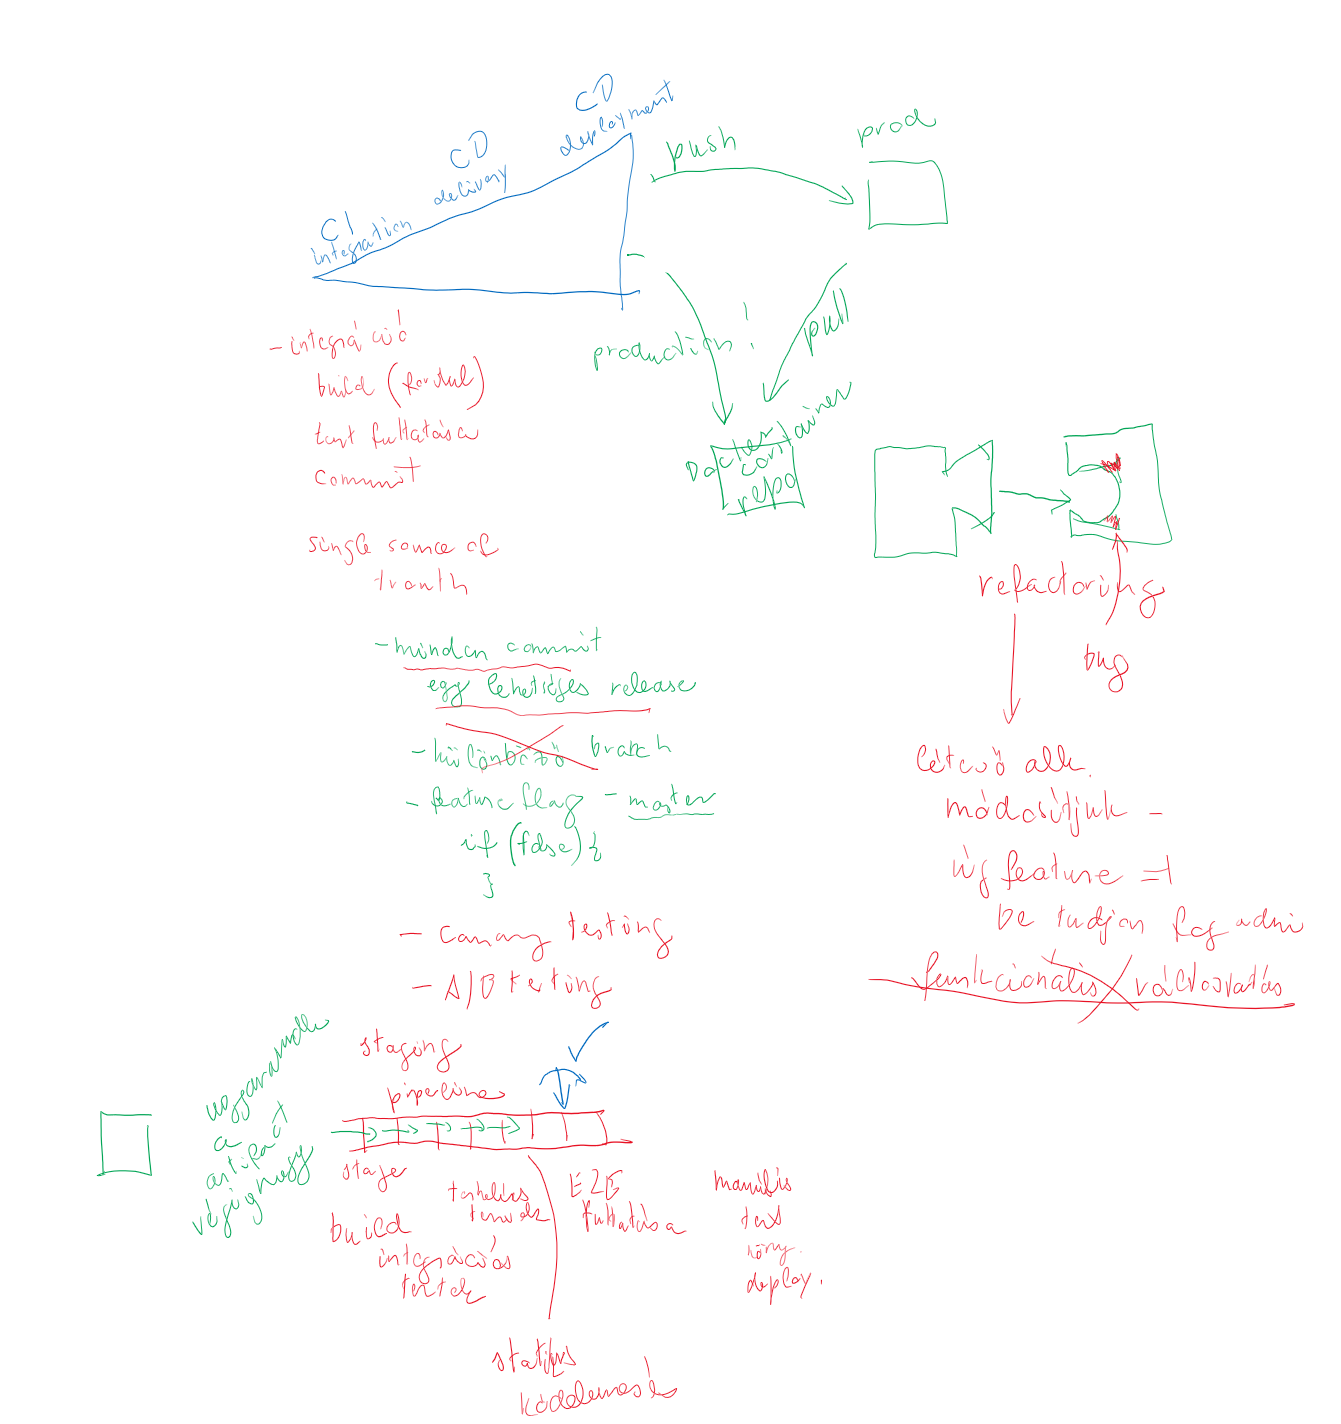 CD
deployment
CD
delivery
CI
integration
push
prod
pull
production!
Docker
container
repo
- integráció
build (fordul)
teszt futtatása
commit
single source of
trouth
- minden commit
egy lehetséges release
- különböző branch
- feature flag - master
if (false) {
}
- Canary testing
- A/B testing
refactoring
bug
létező alk.
módosítjuk -
új feature -t
be tudjon fogadni
funkcionális változtatás
staging
pipeline
ugyanaz
a
artifact
végigmegy
stage
build
integrációs
tesztek
terheléses
tesztek
E2E
futtatása
manuális
teszt
körny.
deploy.
statikus
kódelemzés